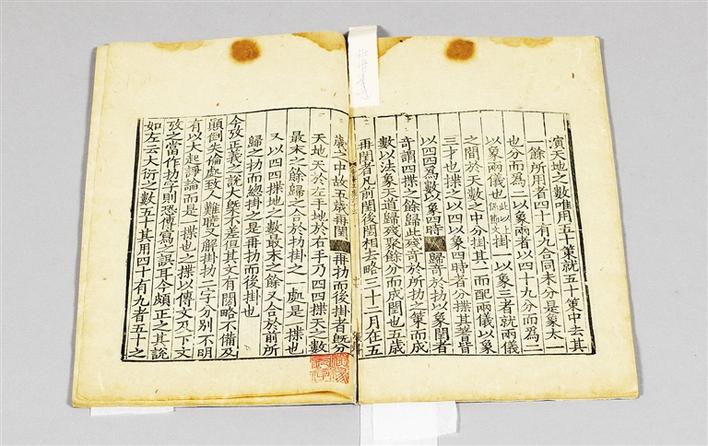 演天地之數唯用五十策就五十策中去其
一餘所用者四十有九合同未分是象太一
也分而為二以象兩者以四十九分而為二
以象兩儀也此以上掛一以象三者就兩儀
之間於天數之中分掛其一而配兩儀以象
三才也揲之以四以象四時者分揲其蓍皆
以四四為數以象四時歸奇於扐以象閏者
奇謂四揲之餘歸此殘奇於所扐之策而成
數以法象天道歸殘聚餘分而成閏也五歲
再閏者凡前閏後閏相去略三十二月在五
歲之中故五歲再閏再扐而後掛者既分
天地天於左手地於右手乃四四揲天之數
最末之餘歸之合於扐掛之一處是一揲也
又以四四揲地之數最末之餘又合於前所
歸之扐而總掛之是再扐而後掛也
今攷正義之說大槩不差但其文有闕略不備及
顛倒失倫處致人難曉又解掛扐二字分別不明
有以大起諍論而是一揲也之揲以傳文及下文
攷之當作扐字則恐傳寫之誤耳今頗正之其說
如左云大衍之數五十其用四十有九者五十之